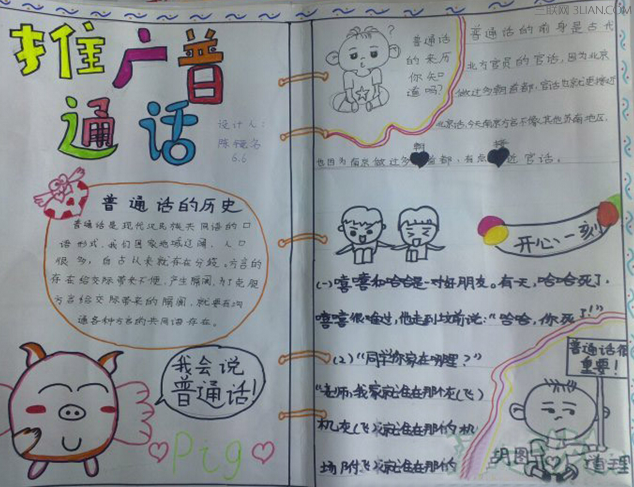 推广普
通话
设计人:
6.6
普通话的历史
普通话是现代汉民族共同语的口
语形式,我们国家地域辽阔,人口
很多,自古以来就存在分歧。方言的
存在给交际带来不便,产生隔阂,为了克服
方言给交际带来的隔阂,就要有沟
通各种方言的共同语存在。
我会说
普通话!
Pig
普通话
的来历
你知
道吗?
普通话的前身是古代
北方官员的官话,因为北京
做过多朝首都,官话也就更接近
北京话,今天南京方言不像其他苏南地区,
也因为南京做过多朝首都,有点接近官话。
开心一刻
(一)嘻嘻和哈哈是一对好朋友。有一天,哈哈死了,
嘻嘻很难过,他走到坟前说:“哈哈,你死了!”
(2)“同学你家在哪哩?”
“老师,我家就住在那个灰(飞)
机灰(飞)就住在那个的机
场附飞就住在那个的
普通话很
重要!
胡图 道理
三联网 3LIAN.COM